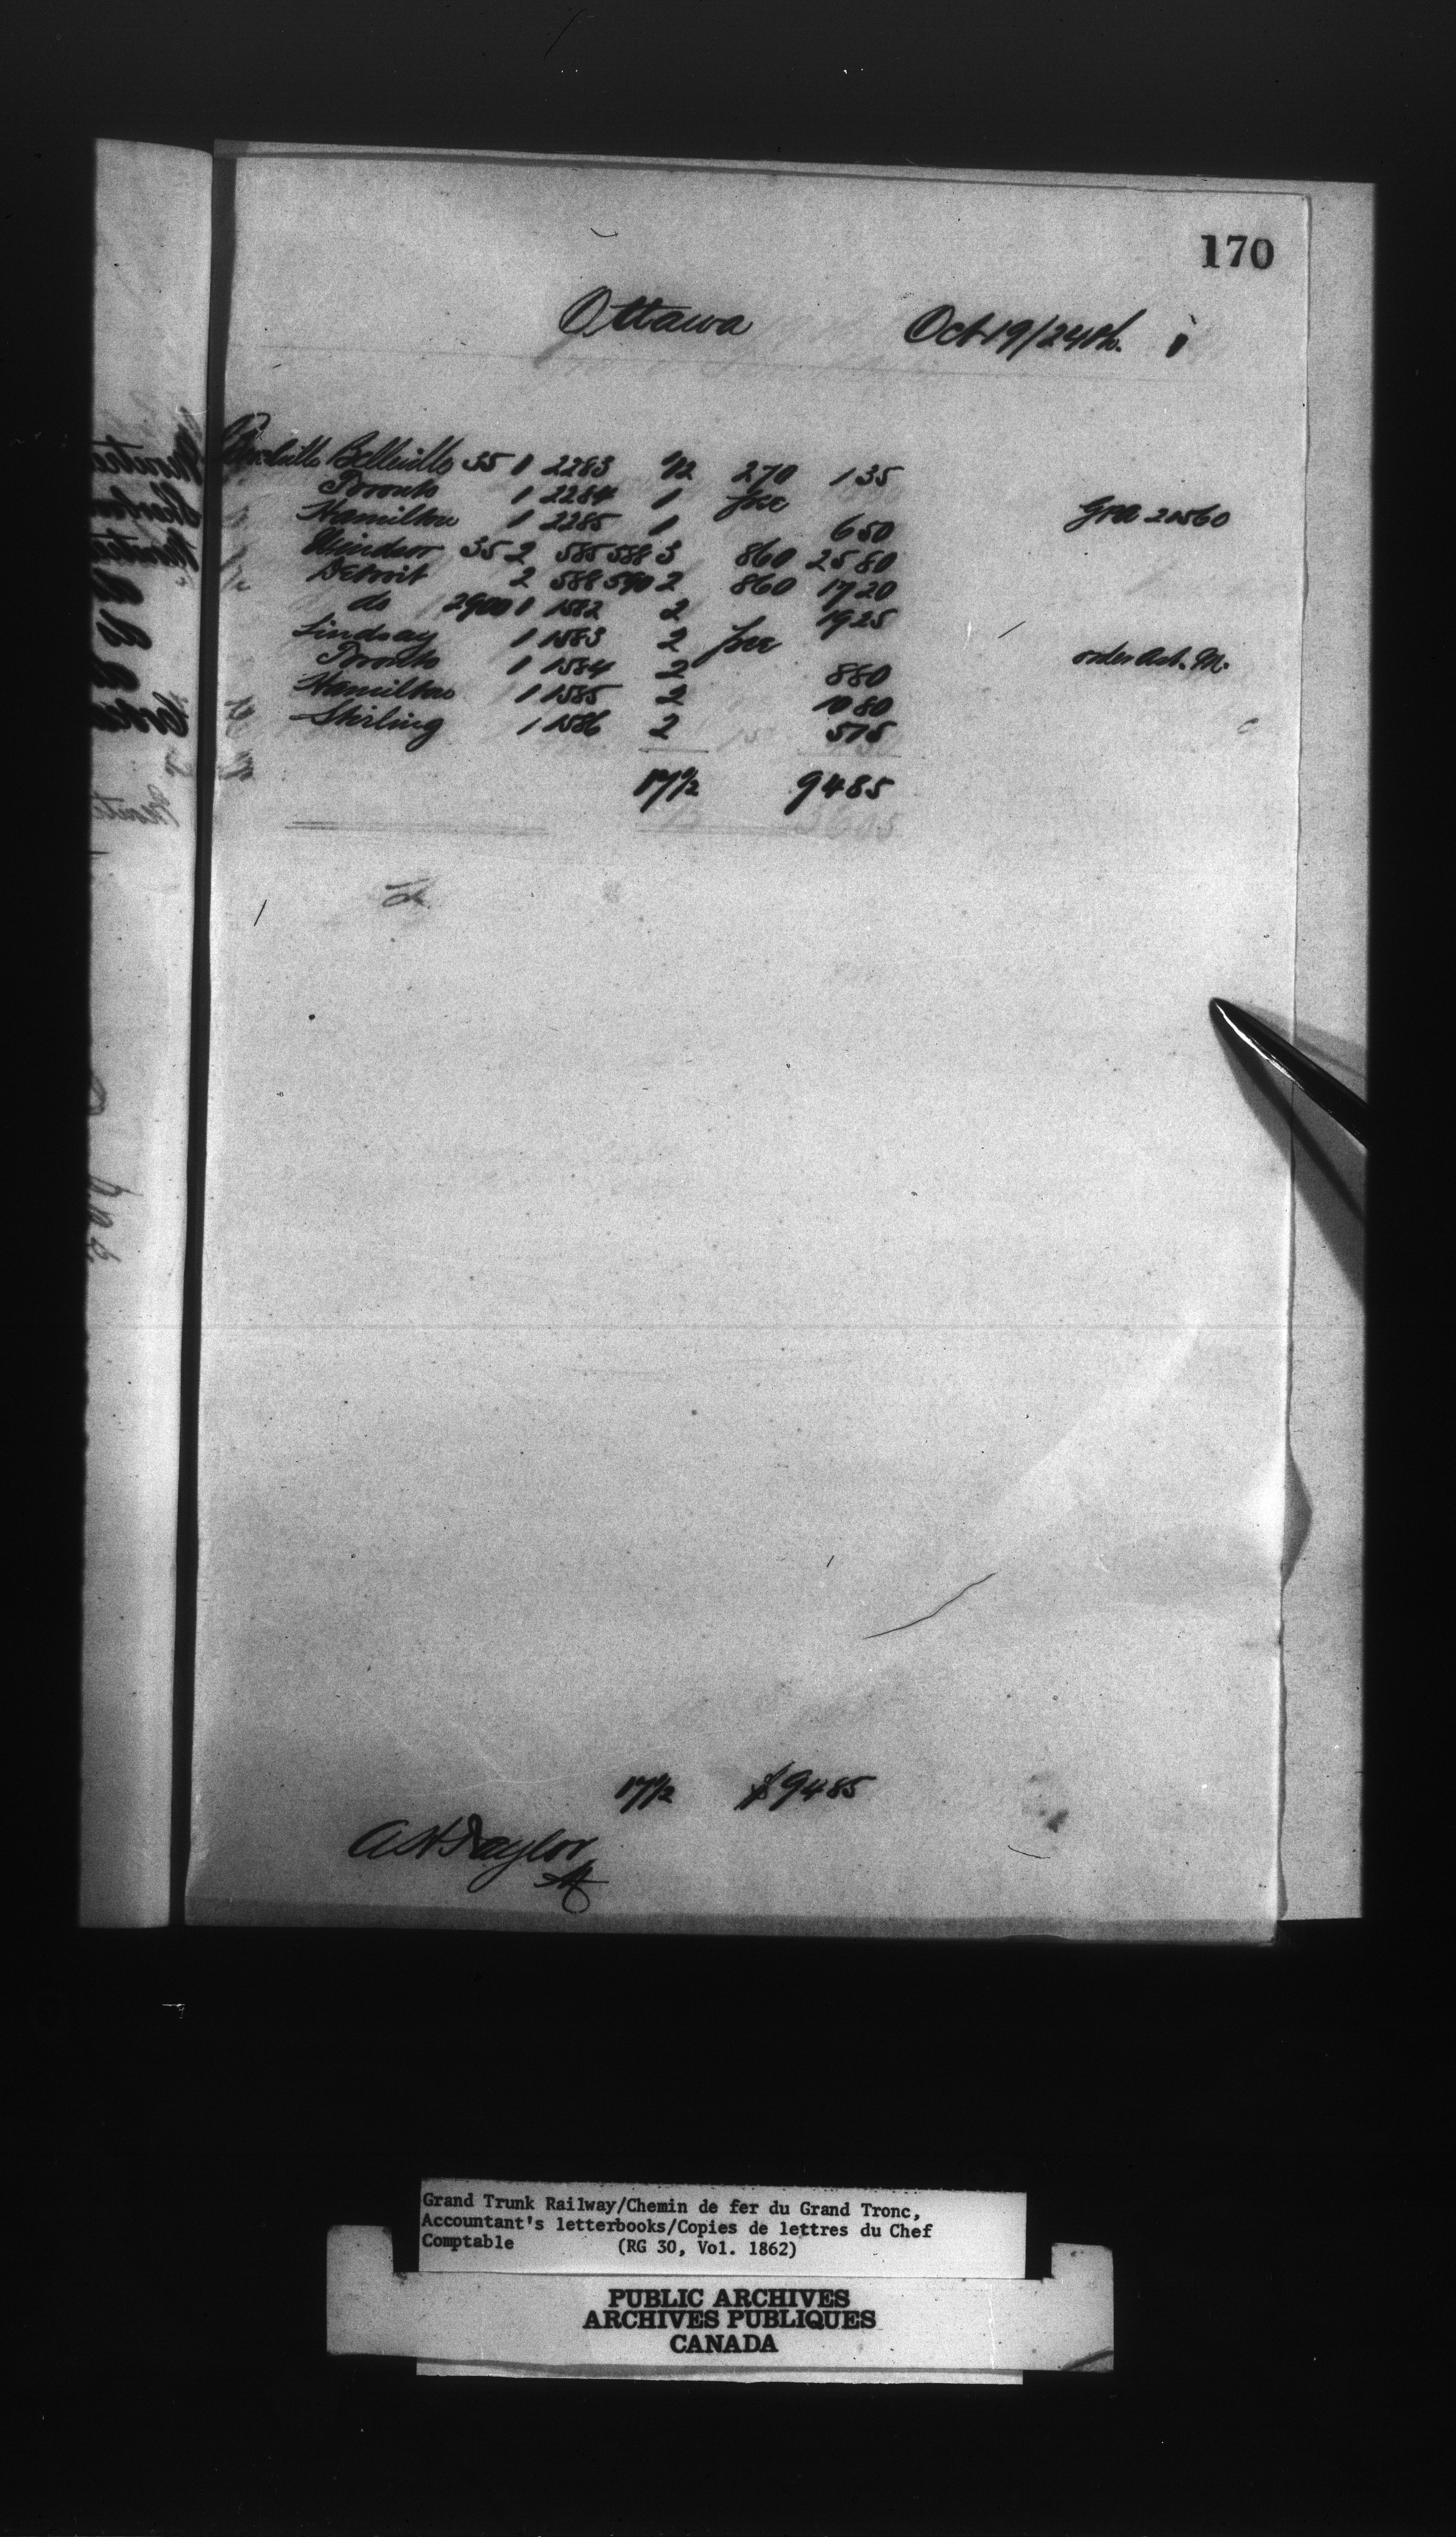 170
Ottawa Oct 19/24th.
Belleville 35 1 2283 1/2 270 135
Toronto 1 2284 1 free GPA 20560
Hamilton 1 2285 1 650
Windsor 35 2 585 588 3 860 2580
Detroit 2 588 590 2 860 1720
do 2900 1 1582 2 1925
Lindsay 1 1583 2 free order Ast. M.
Toronto 1 1584 2 880
Hamilton 1 1585 2 1080
Stirling 1 1586 2 515
17 1/2 9485
17 1/2 $9485
A H Taylor
Grand Trunk Railway/Chemin de fer du Grand Tronc,
Accountant's letterbooks/Copies de lettres du Chef
Comptable (RG 30, Vol. 1862)
PUBLIC ARCHIVES
ARCHIVES PUBLIQUES
CANADA